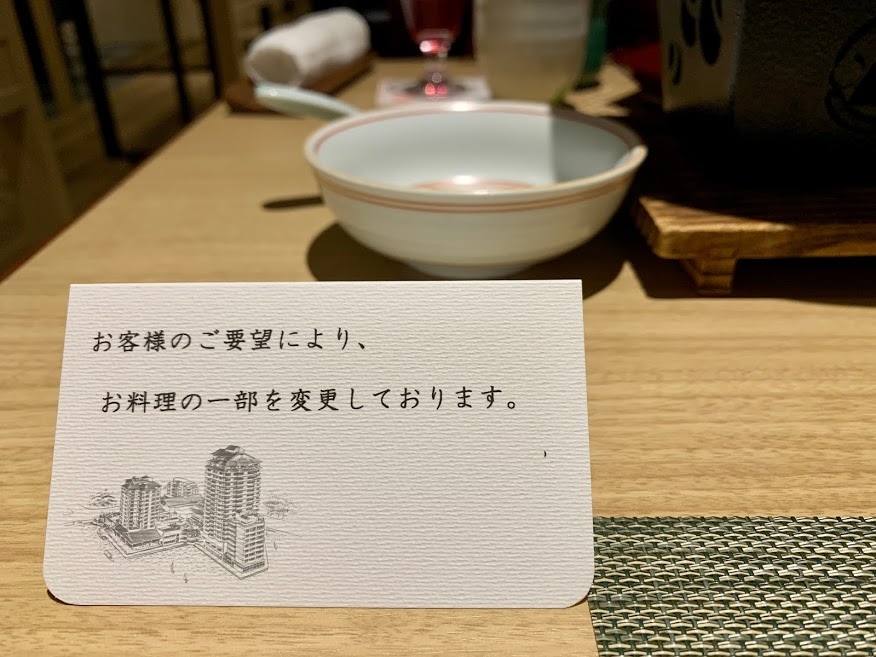 お客様のご要望により、
お料理の一部を変更しております。